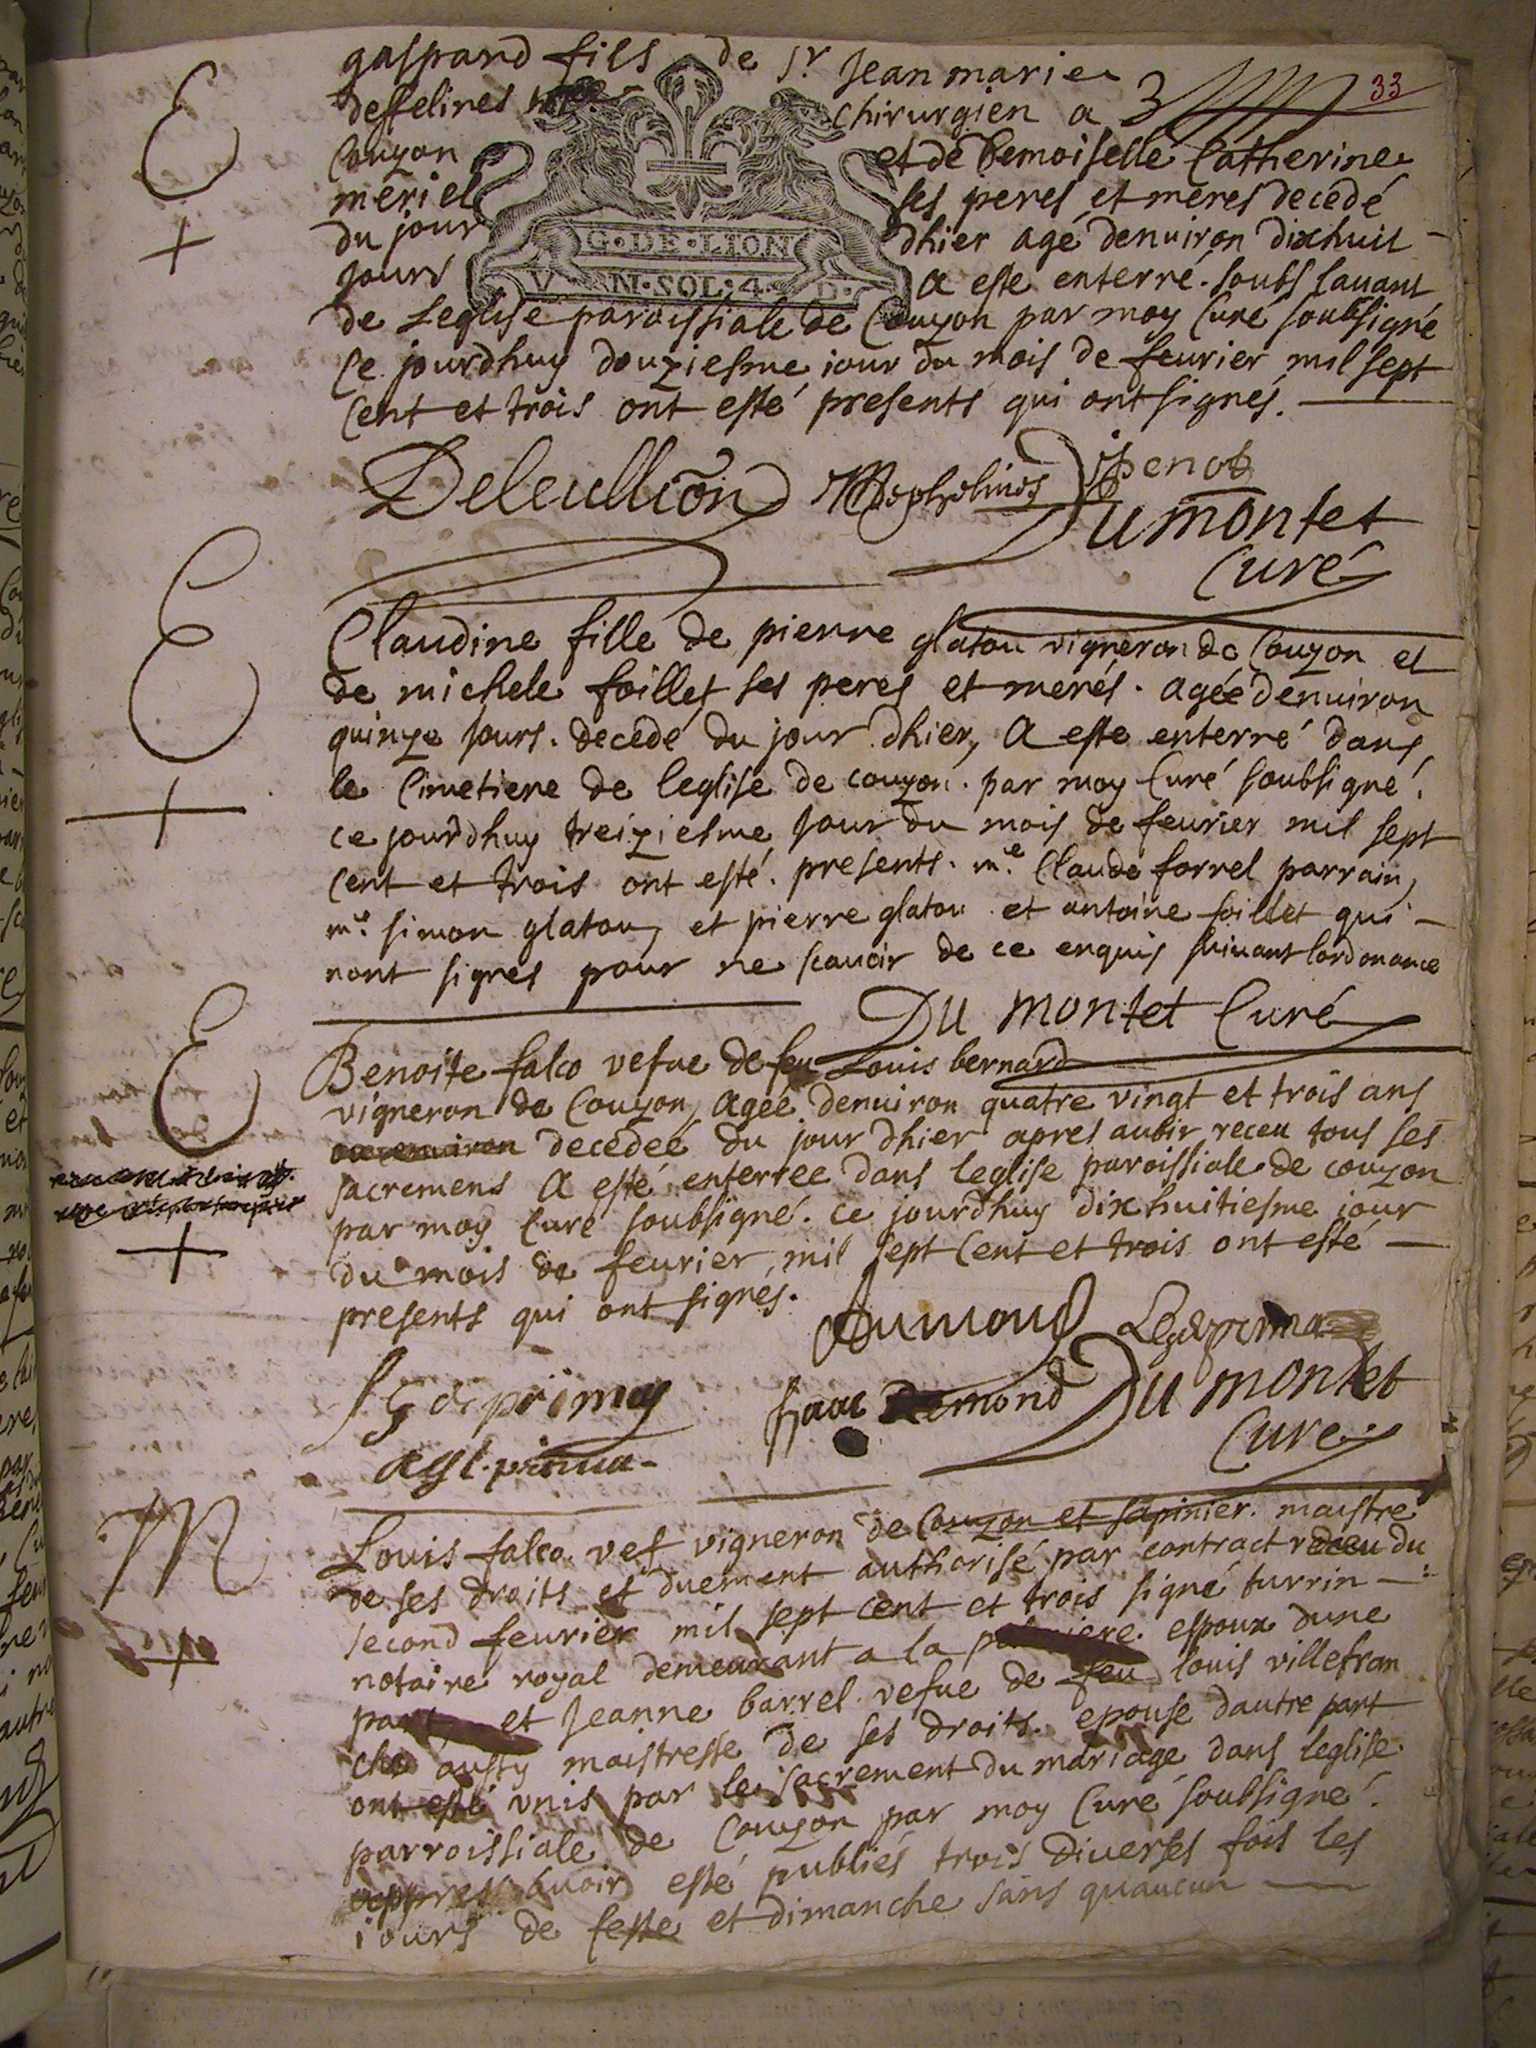 33
gaspard fils de Sr Jean marie
desselines chirurgien a
Couzon et de Demoiselle Catherine
meriel ses peres et meres decedé
du jour dhier agé denuiron dixhuit
Jours a esté enterré soubs lauant
G·DE·LION
V M·SOL·4 D·
de Leglise paroissiale de Couzon par moy Curé soubsigné
Ce jourdhuy douziesme iour du mois de feurier mil sept
Cent et trois ont esté presents qui ont signés.
E
+
Deleullion
penot
Dumontet
Curé
E
+
Claudine fille de pierre glatou vigneron de Couzon et
de michele foillet ses peres et merés. agée denuiron
quinze Jours. decedé du jour dhier, a esté enterré dans
le Cimetiere de leglise de couzon. par moy Curé soubsigné.
ce jourdhuy treiziesme Jour du mois de feurier mil sept
Cent et trois ont esté. presents. me. Claude forrel parrain,
me. simon glatou, et pierre glatou et antoine foillet qui
nont signés pour ne scauoir de ce enquis suiuant lordonance
Du montet Curé
E
+
Benoite falco vefue de feu Louis bernard
vigneron de Couzon, agée denuiron quatre vingt et trois ans
decedeé du jour dhier apres auoir receu tous ses
sacremens a esté enterrée dans leglise paroissiale de couzon
par moy Curé soubsigné. ce jourdhuy dixhuitiesme iour
du mois de feurier, mil sept Cent et trois ont esté
presents qui ont signés.
Dumond
deprimay
Isaac Demond Du montet
Curé
M
+
Louis falco vef vigneron de Couzon et sapinier. maistre
de ses droits et duement authorisé par contract receu du
second feurier mil sept cent et trois signé turrin
notaire royal demeurant a la espoux dune
part et Jeanne barrel vefue de feu louis villefran
che aussy maistresse de ses droits. epouse dautre part
ont esté vnis par le sacrement du mariage dans leglise
parroissiale de Couzon par moy Curé soubsigné.
appres auoir esté publiés trois diuerses fois les
iours de feste et dimanche sans quaucun